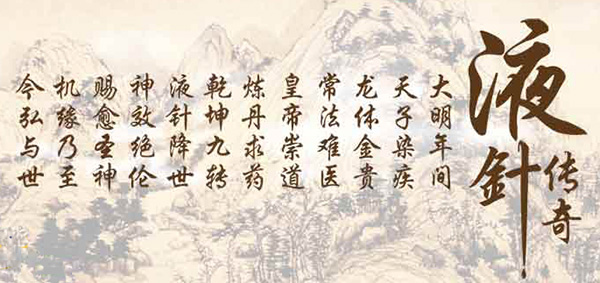 液針
传奇
大明年间
天子染疾
龙体金贵
常法难医
皇帝崇道
炼丹求药
乾坤九转
液针降世
神效绝伦
赐愈圣神
机缘乃至
今弘与世